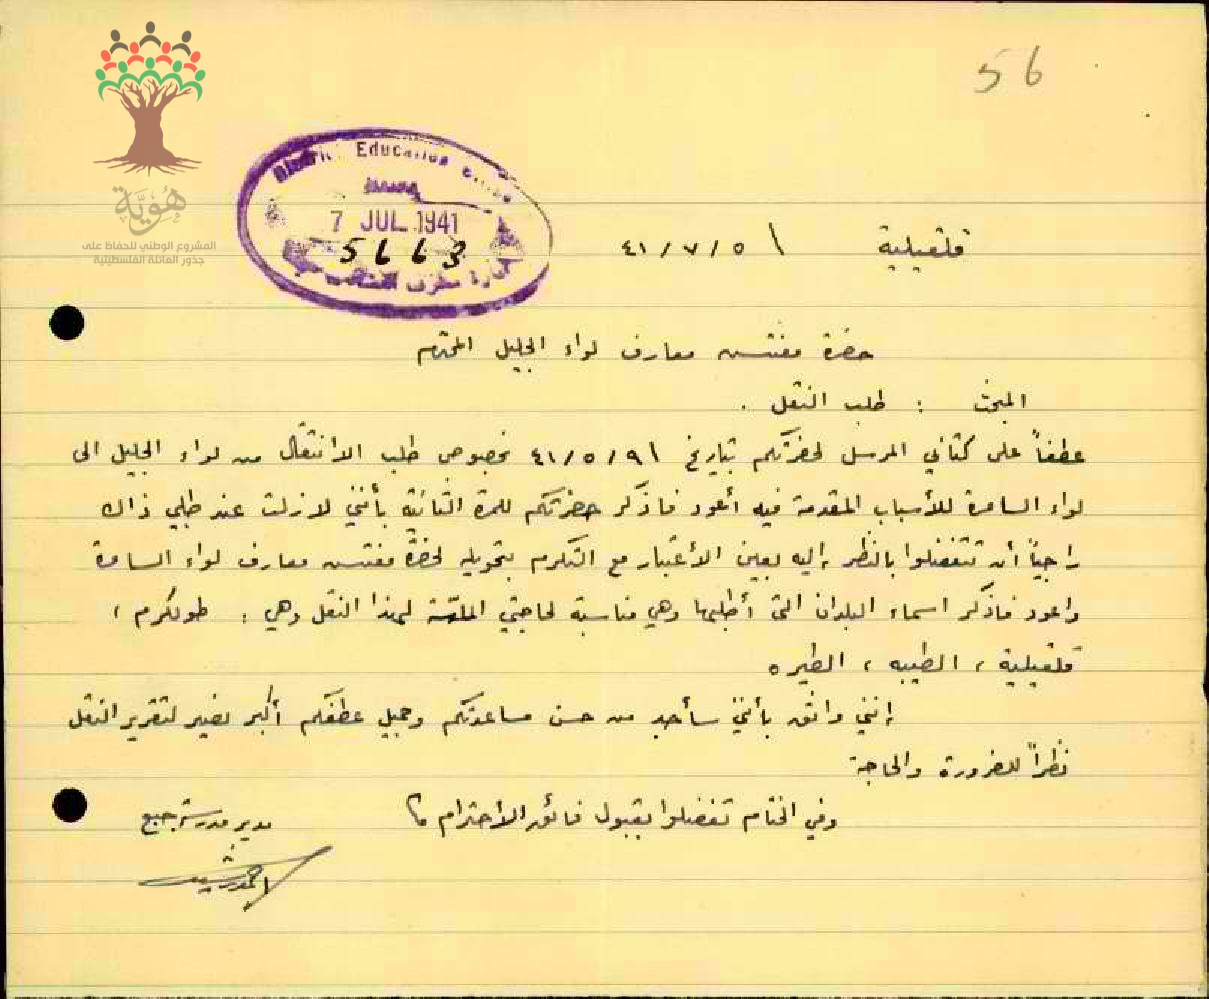 56
هُوِيَّة
المشروع الوطني للحفاظ على
جذور العائلة الفلسطينية
District Education
7 JUL 1941
5663
قلقيلية ٤١/٧/٥
حضرة مفتش معارف لواء الجليل المحترم
المبحث : طلب النقل .
عطفاً على كتابي المرسل لحضرتكم بتاريخ ٤١/٥/٩ بخصوص طلب الانتقال من لواء الجليل الى
لواء السامرة للأسباب المقدمة فيه أعود فاذكر حضرتكم للمرة الثانية بأنني لا زلت عند طلبي ذاك
راجياً أن تتفضلوا بالنظر إليه بعين الأعتبار مع التكرم بتحويله لحضرة مفتش معارف لواء السامرة
واعود فاذكر اسماء البلدان التي أطلبها وهي مناسبة لحاجتي الملحّة لهذا النقل وهي : طولكرم ،
قلقيلية ، الطيبه ، الطيره
إنني واثق بأنني سأجد من حسن مساعدتكم وجميل عطفكم أكبر نصير لتقرير النقل
نظراً للضرورة والحاجة
وفي الختام تفضلوا بقبول فائق الأحترام
مدير مدرسة جبع